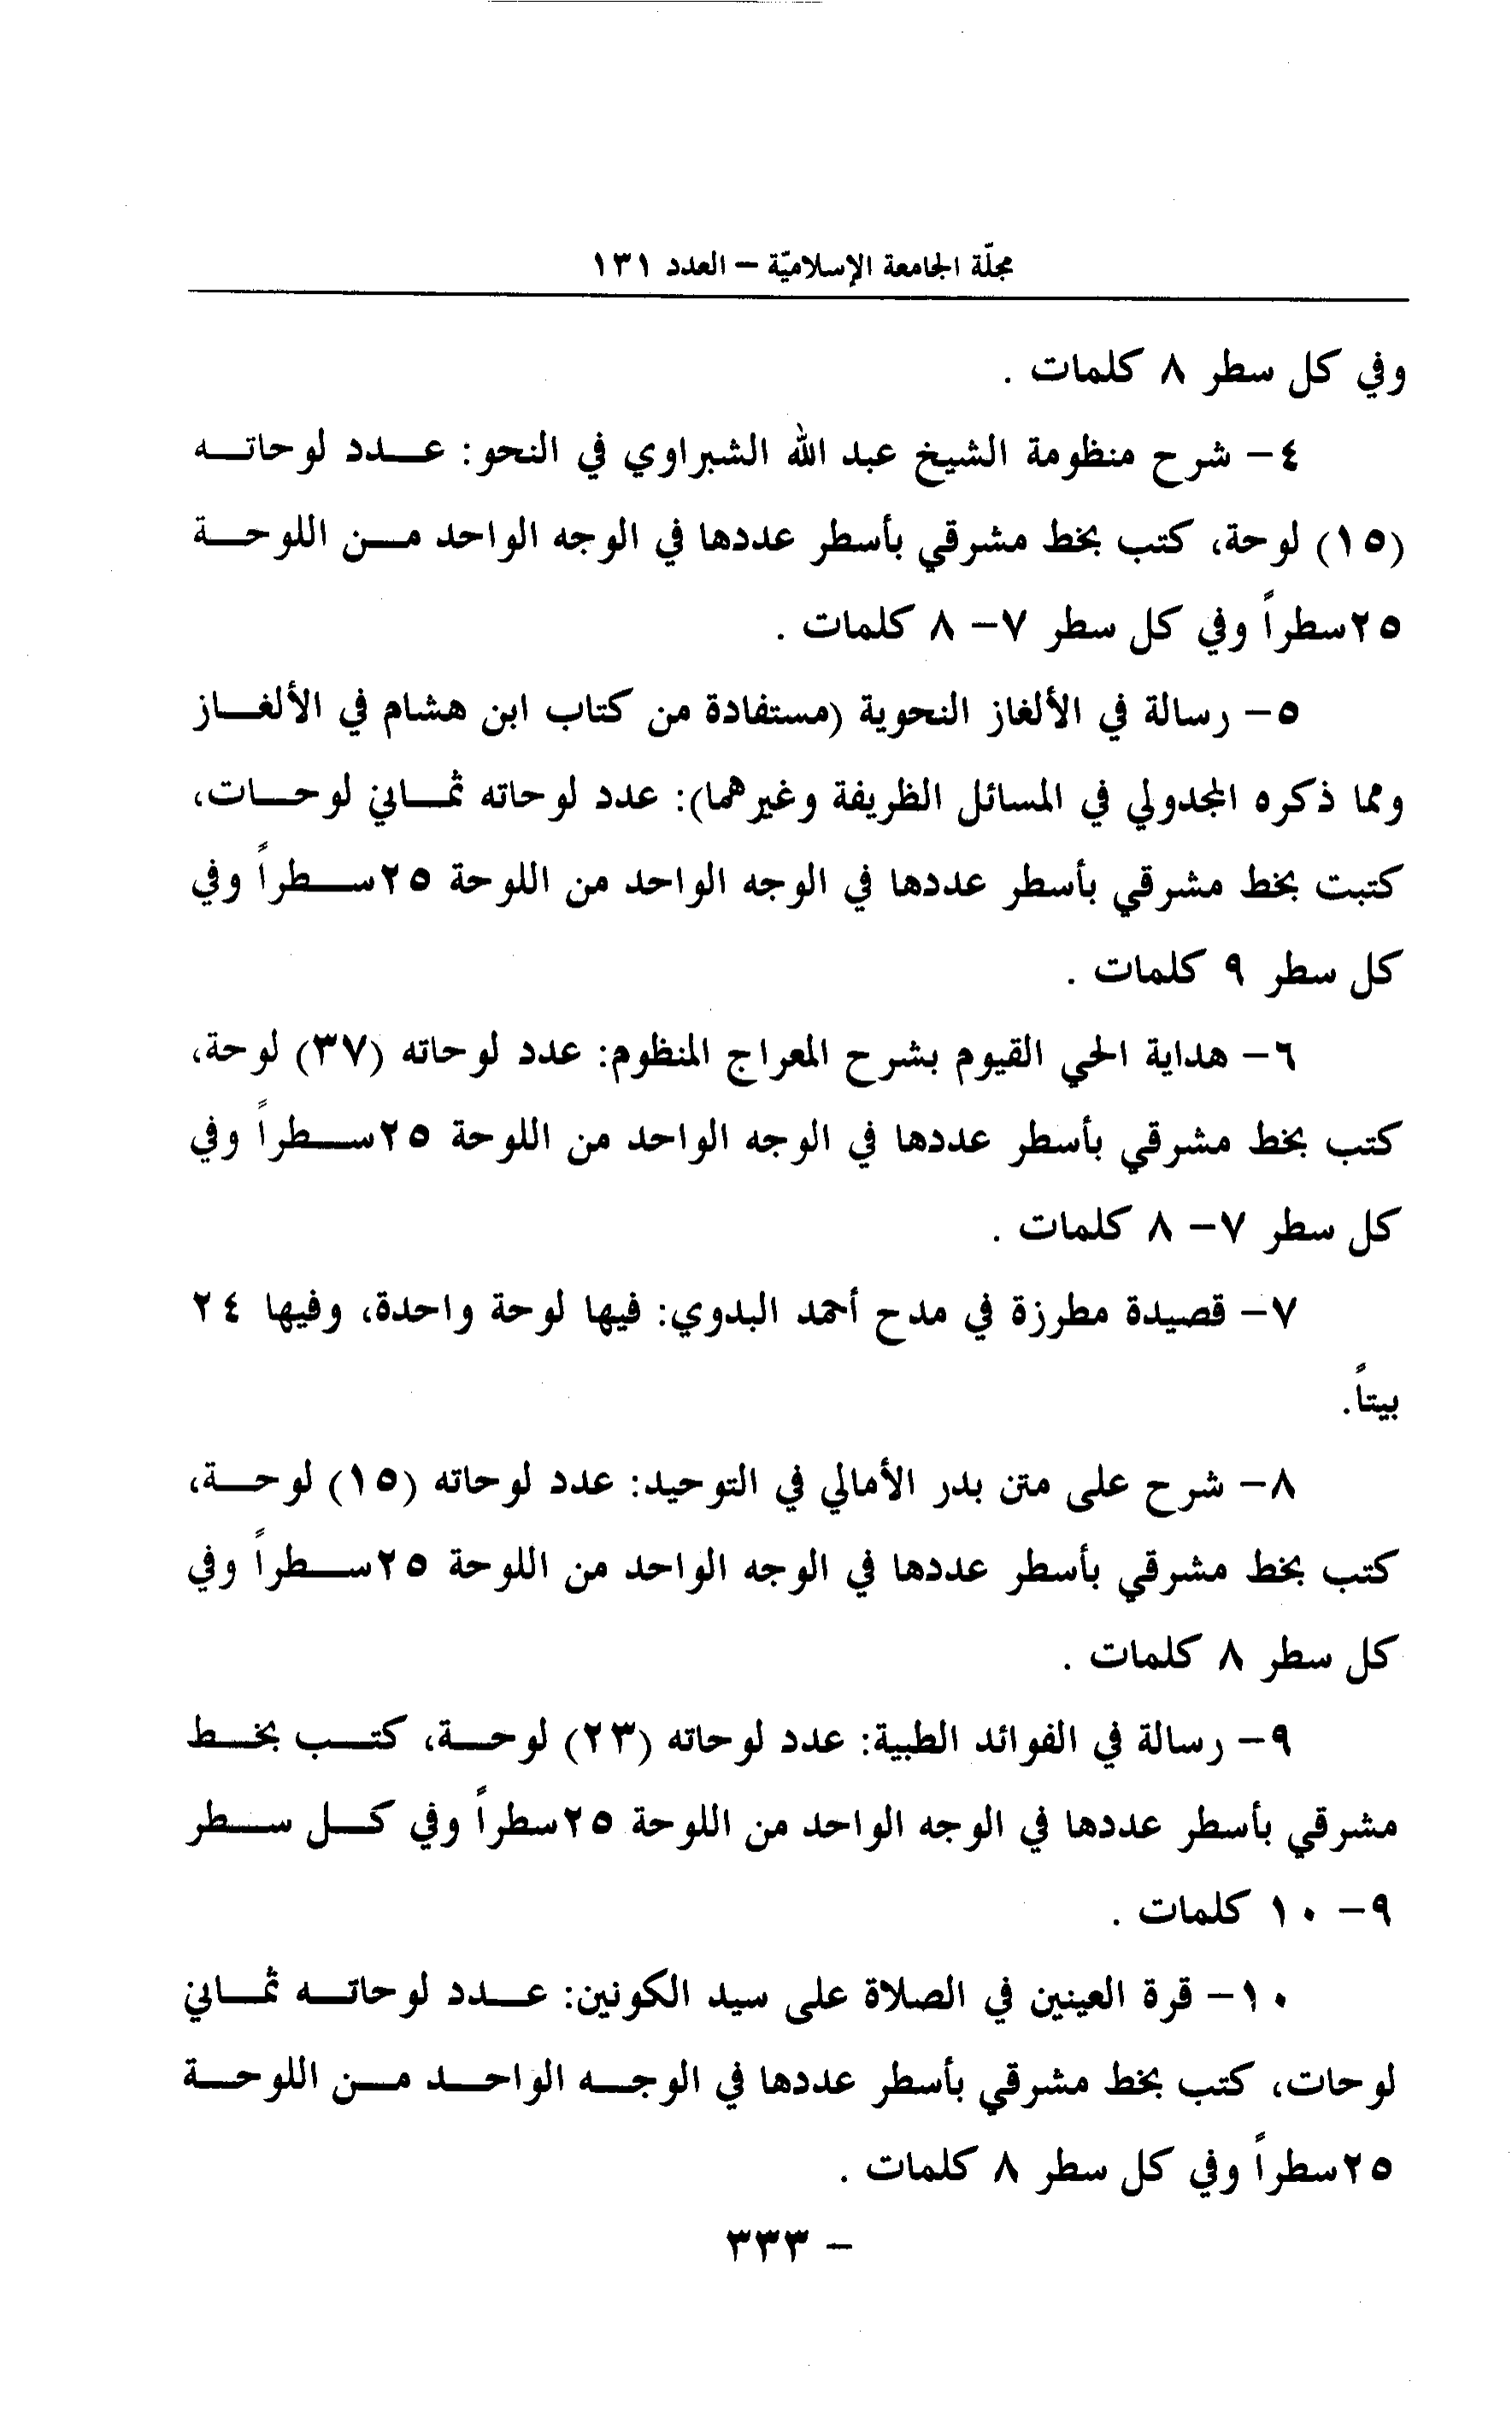 مجلّة الجامعة الإسلاميّة – العدد ١٣١
وفي كل سطر ٨ كلمات .
٤- شرح منظومة الشيخ عبد الله الشبراوي في النحو: عدد لوحاته
(١٥) لوحة، كتب بخط مشرقي بأسطر عددها في الوجه الواحد من اللوحة
٢٥سطراً وفي كل سطر ٧- ٨ كلمات .
٥- رسالة في الألغاز النحوية (مستفادة من كتاب ابن هشام في الألغاز
ومما ذكره المجدولي في المسائل الظريفة وغيرهما): عدد لوحاته ثماني لوحات،
كتبت بخط مشرقي بأسطر عددها في الوجه الواحد من اللوحة ٢٥سطراً وفي
كل سطر ٩ كلمات .
٦- هداية الحي القيوم بشرح المعراج المنظوم: عدد لوحاته (٣٧) لوحة،
كتب بخط مشرقي بأسطر عددها في الوجه الواحد من اللوحة ٢٥سطراً وفي
كل سطر ٧- ٨ كلمات .
٧- قصيدة مطرزة في مدح أحمد البدوي: فيها لوحة واحدة، وفيها ٢٤
بيتاً.
٨- شرح على متن بدر الأمالي في التوحيد: عدد لوحاته (١٥) لوحة،
كتب بخط مشرقي بأسطر عددها في الوجه الواحد من اللوحة ٢٥سطراً وفي
كل سطر ٨ كلمات .
٩- رسالة في الفوائد الطبية: عدد لوحاته (٢٣) لوحة، كتب بخط
مشرقي بأسطر عددها في الوجه الواحد من اللوحة ٢٥سطراً وفي كل سطر
٩- ١٠ كلمات .
١٠- قرة العينين في الصلاة على سيد الكونين: عدد لوحاته ثماني
لوحات، كتب بخط مشرقي بأسطر عددها في الوجه الواحد من اللوحة
٢٥سطراً وفي كل سطر ٨ كلمات .
– ٣٣٣